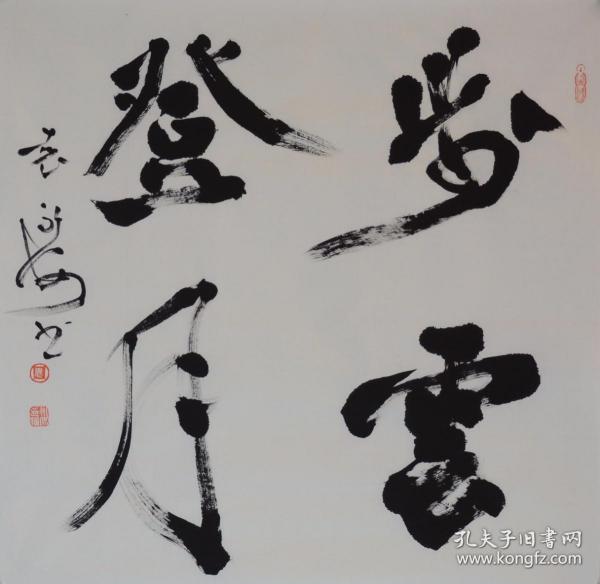 步雲
登月
书
孔夫子旧书网
www.kongfz.com